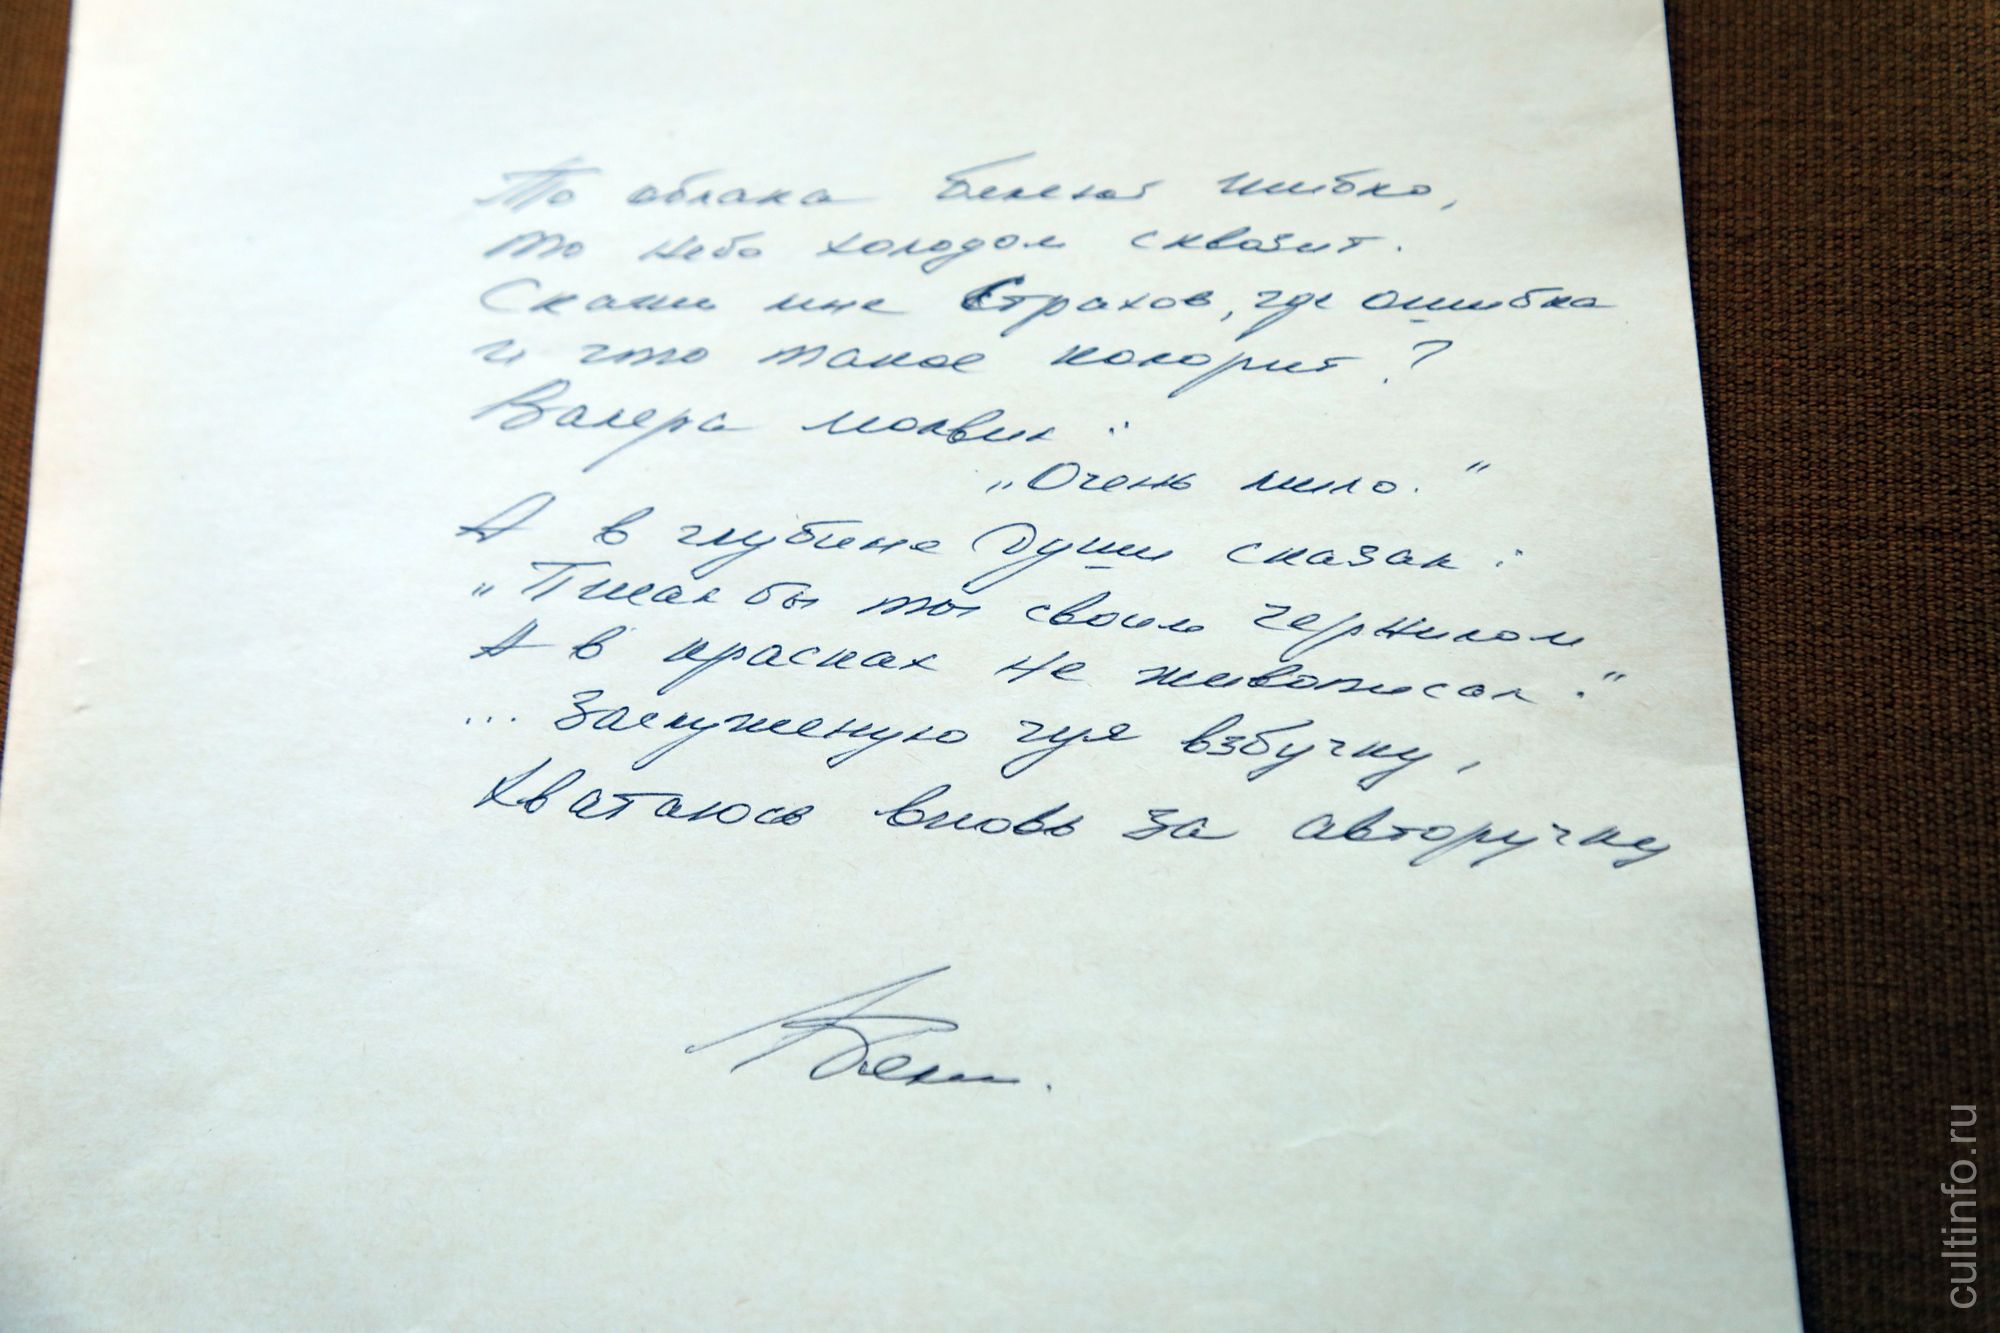 То облака белеют шибко,
то небо холодом сквозит.
Скажи мне Страхов, где ошибка
и что такое колорит?
Валера молвил:
„Очень мило."
А в глубине души сказал:
„Писал бы ты своим чернилом
А в красках не живописал."
... Заслуженую чуя взбучку,
Хватаюсь вновь за авторучку
cultinfo.ru